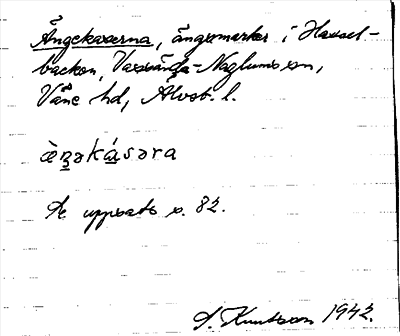 Ängekaserna, ängsmarker i Hassel-
backen, Vassända-Naglums sn,
Väne hd, Älvsb. l.
ὰn̠əkάsəra
Se uppsats s. 82.
S. Knutsson 1942.